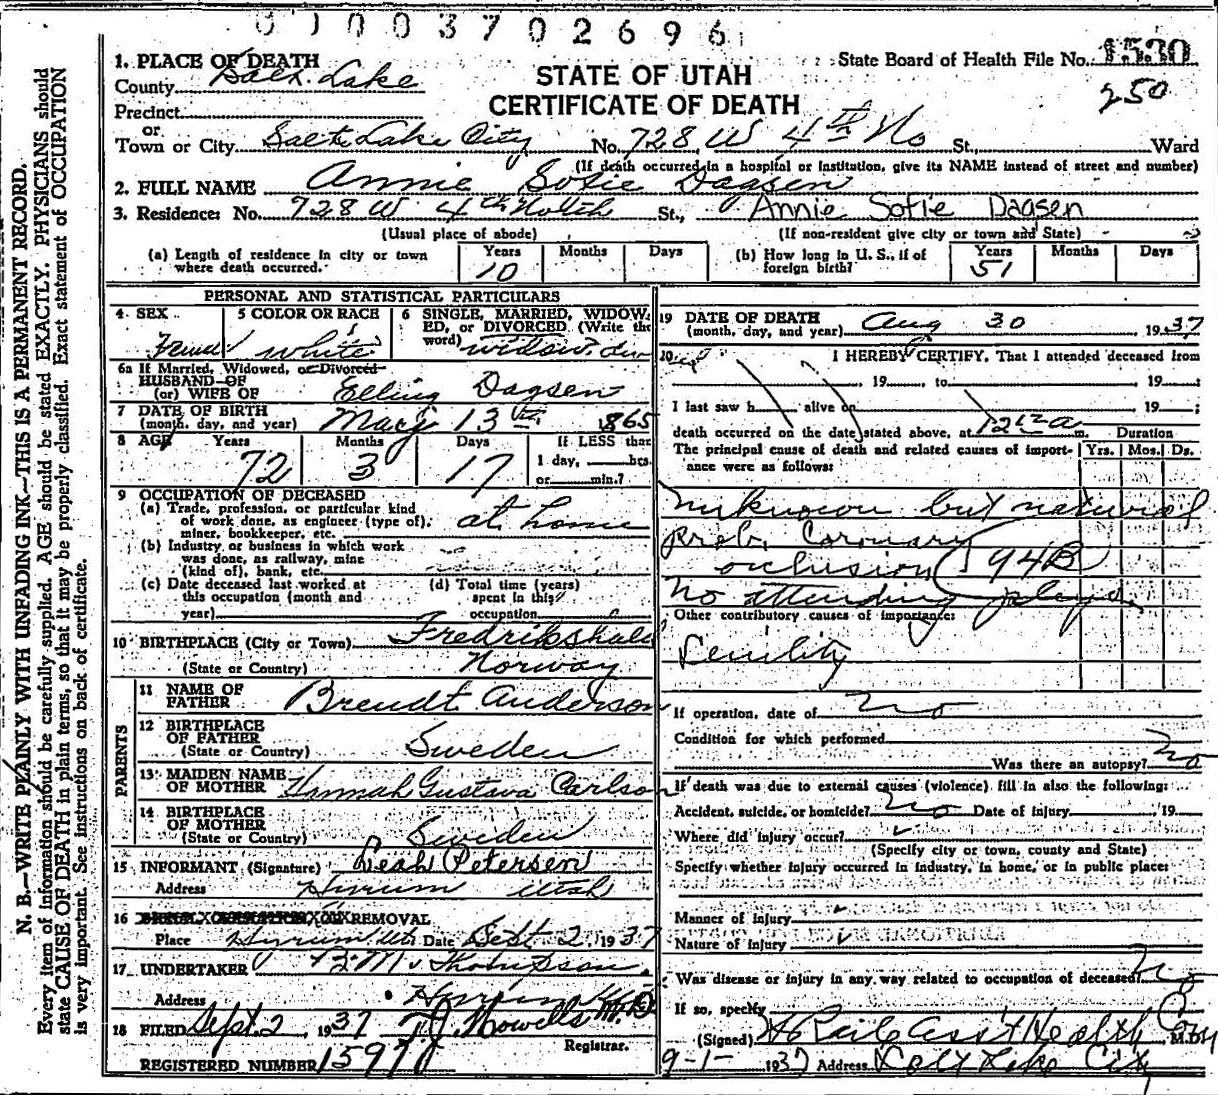 0 1 0 0 3 7 0 2 6 9 6
State Board of Health File No. 1530
250
STATE OF UTAH
CERTIFICATE OF DEATH
1. PLACE OF DEATH
County Salt Lake
Precinct
or
Town or City Salt Lake City No. 728 W 4th No St., Ward
(If death occurred in a hospital or institution, give its NAME instead of street and number)
2. FULL NAME Annie Sofie Dagsen
3. Residence: No. 728 W 4th North St., Annie Sofie Dagsen
(Usual place of abode) (If non-resident give city or town and State)
(a) Length of residence in city or town where death occurred. Years 10 Months Days
(b) How long in U. S., if of foreign birth? Years 51 Months Days
PERSONAL AND STATISTICAL PARTICULARS
4 SEX Female
5 COLOR OR RACE white
6 SINGLE, MARRIED, WIDOWED, or DIVORCED (Write the word) widow
6a If Married, Widowed, or Divorced
HUSBAND OF
(or) WIFE OF Elling Dagsen
7 DATE OF BIRTH
(month, day, and year) May 13th 1865
8 AGE Years 72 Months 3 Days 17 If LESS than
1 day, hrs.
or min.?
9 OCCUPATION OF DECEASED
(a) Trade, profession, or particular kind
of work done, as engineer (type of), at home
miner, bookkeeper, etc.
(b) Industry or business in which work
was done, as railway, mine
(kind of), bank, etc.
(c) Date deceased last worked at
this occupation (month and
year)
(d) Total time (years)
spent in this
occupation
10 BIRTHPLACE (City or Town) Fredrikshald
(State or Country) Norway
PARENTS
11 NAME OF
FATHER Brendt Anderson
12 BIRTHPLACE
OF FATHER
(State or Country) Sweden
13 MAIDEN NAME
OF MOTHER Hannah Gustava Carlson
14 BIRTHPLACE
OF MOTHER
(State or Country) Sweden
15 INFORMANT (Signature) Leah Petersen
Address Hyrum Utah
16 REMOVAL
Place Hyrum Ut Date Sept 2 1937
17 UNDERTAKER Thompson
Address Hyrum Ut
18 FILED Sept. 2 1937 T J Howells M.D.
Registrar.
REGISTERED NUMBER 1597
19 DATE OF DEATH
(month, day, and year) Aug 30, 1937
20 I HEREBY CERTIFY, That I attended deceased from
, 19 , to 19 ;
I last saw h alive on 19 ;
death occurred on the date stated above, at 12 a m. Duration
The principal cause of death and related causes of importance were as follows: Yrs. Mos. Ds.
unknown but natural
prob. Coronary
occlusion 94B
no attending
Other contributory causes of importance:
Senility
If operation, date of no
Condition for which performed
Was there an autopsy? no
If death was due to external causes (violence) fill in also the following:
Accident, suicide, or homicide? no Date of injury , 19
Where did injury occur?
(Specify city or town, county and State)
Specify whether injury occurred in industry, in home, or in public place:
Manner of injury
Nature of injury
Was disease or injury in any way related to occupation of deceased? no
If so, specify
(Signed) Ass't Health Com M.D.
9-1- 1937 Address Salt Lake City
N. B.—WRITE PLAINLY WITH UNFADING INK—THIS IS A PERMANENT RECORD.
Every item of information should be carefully supplied. AGE should be stated EXACTLY. PHYSICIANS should
state CAUSE OF DEATH in plain terms, so that it may be properly classified. Exact statement of OCCUPATION
is very important. See instructions on back of certificate.